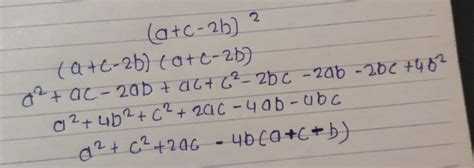 (a+c-2b)²
(a+c-2b) (a+c-2b)
a²+ac-2ab+ac+c²-2bc-2ab-2bc+4b²
a²+4b²+c²+2ac-4ab-4bc
a²+c²+2ac-4b(a+c+b)